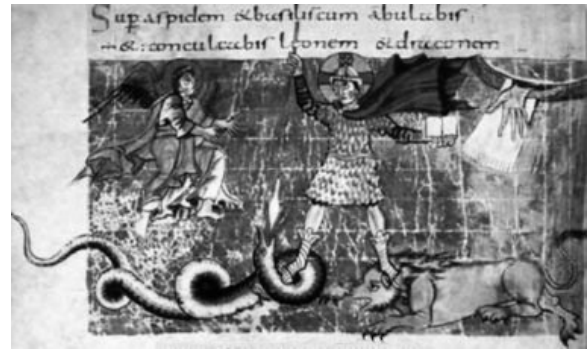 Suꝑ aspidem & basiliscum abulabis;
& conculcabis leonem & draconem